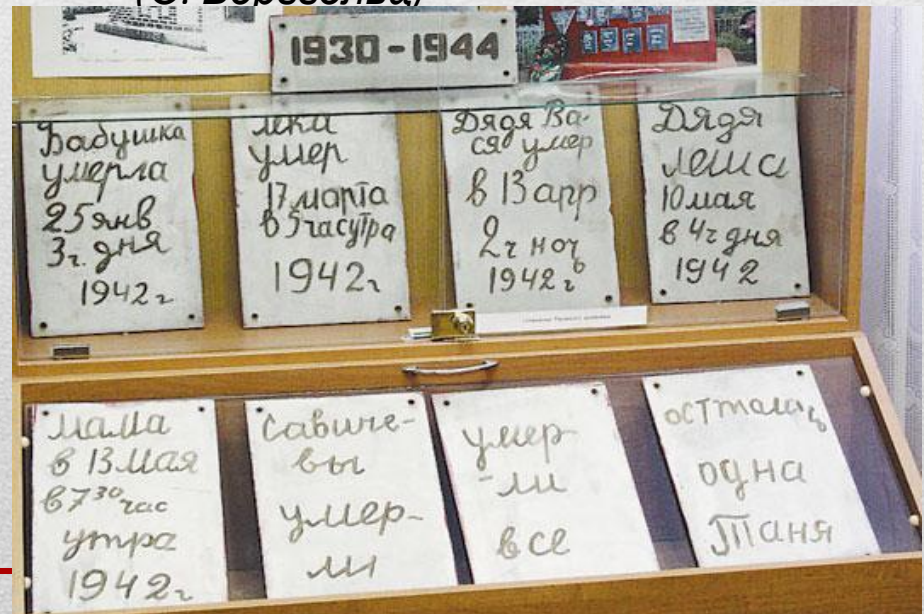 1930-1944
Бабушка
умерла
25 янв
3 г. дня
1942 г
Лека
умер
17 марта
в 5 час утра
1942 г
Дядя Ва-
ся умер
в 13 апр
2 ч ноч
1942 г
Дядя
Леша
10 мая
в 4 ч дня
1942
мама
в 13 мая
в 7 30 час
утра
1942 г
Савиче-
вы
умер-
ли
умер-
-ли
все
одна
Таня